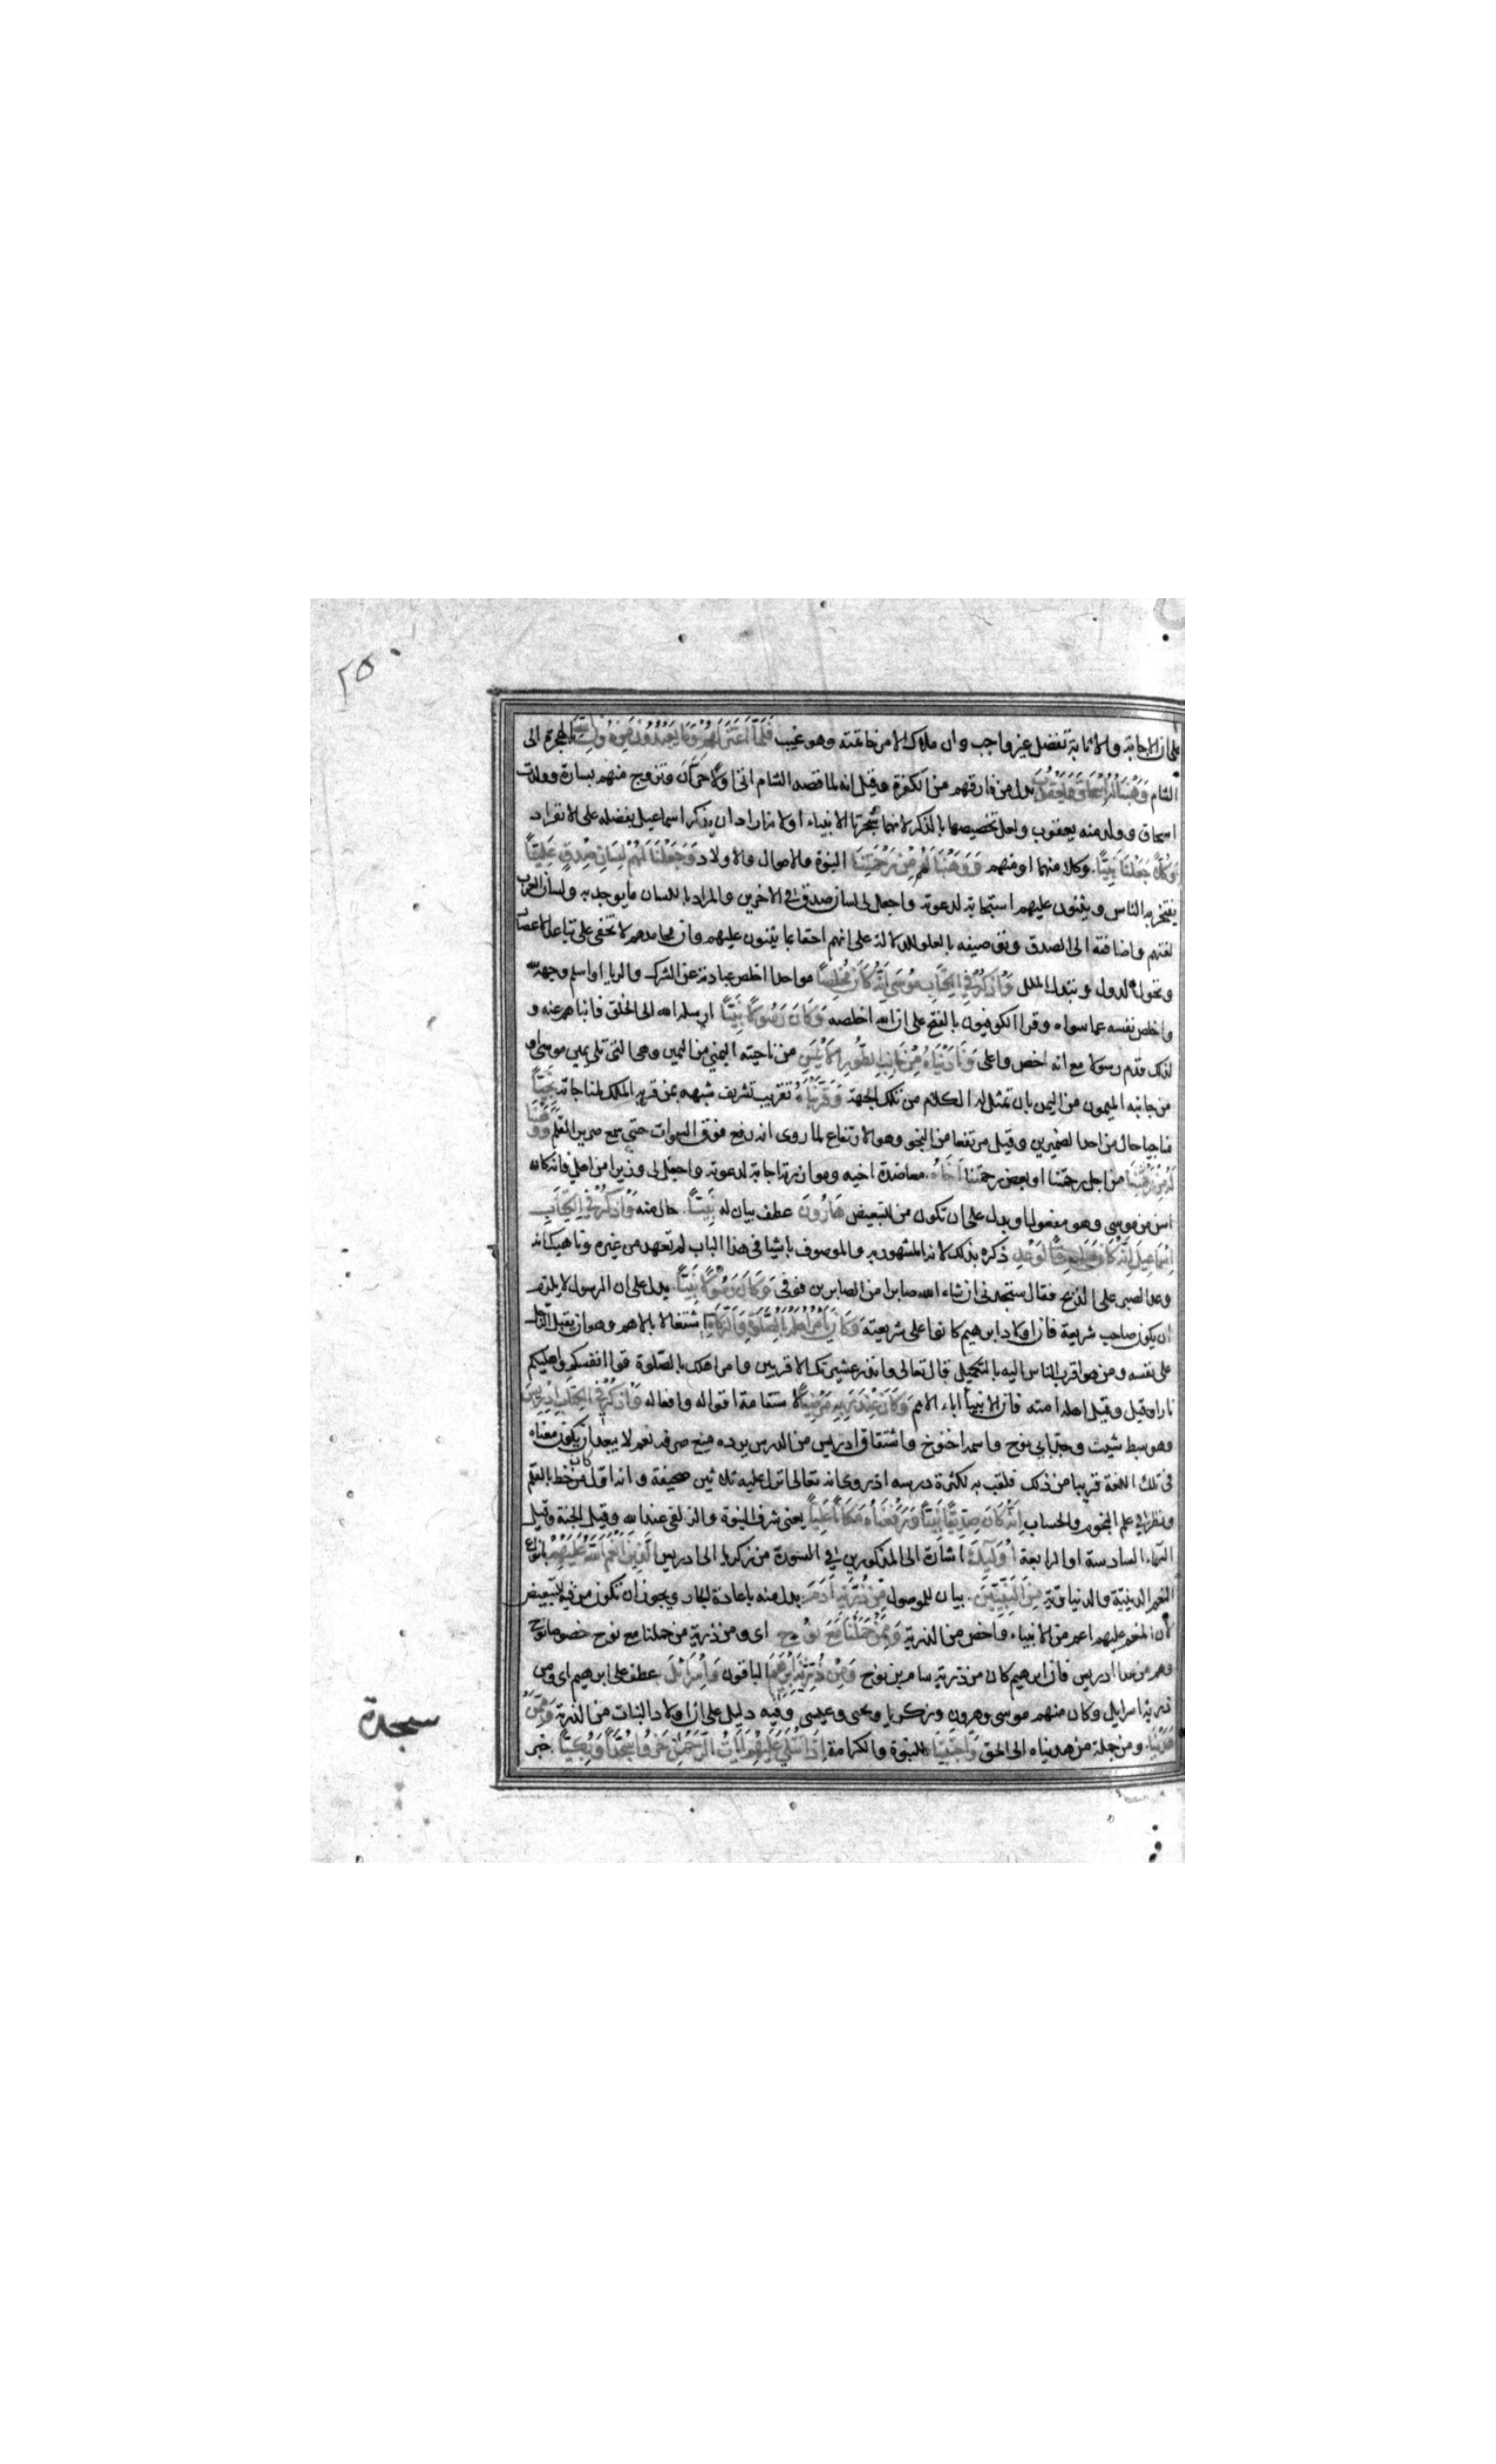 ٢٥٠
على ان الاجابة والاثابة تفضل غير واجب وان ملاك الامر خاتمته وهو غيب فَلَمَّا اعْتَزَلَهُمْ وَمَا يَعْبُدُونَ مِن دُونِ اللّهِ بالهجرة الى
الشام وَهَبْنَا لَهُ اِسْحَاقَ وَيَعْقُوبَ بدل من فارقهم من الكفرة وقيل انه لما قصد الشام اتى اولا حران وتزوج منهم بسارة وولدت
اسحاق وولد منه يعقوب ولعل تخصيصهما بالذكر لانهما شجرتا الانبياء او لانه اراد ان يذكر اسماعيل بفضله على الانفراد
وَكُلًّا جَعَلْنَا نَبِيًّا وكلا منهما او منهم وَوَهَبْنَا لَهُمْ مِنْ رَحْمَتِنَا النبوة والاموال والاولاد وَجَعَلْنَا لَهُمْ لِسَانَ صِدْقٍ عَلِيًّا
يفتخر بهم الناس ويثنون عليهم استجابة لدعوته واجعل لى لسان صدق فى الاخرين والمراد باللسان ما يوجد به ولسان العرب
لغتهم واضافته الى الصدق وتوصيفه بالعلو للدلالة على انهم احقاء بما يثنون عليهم وان محامدهم لا تخفى على تباعد الاعصار
وتحول الدول وتبدل الملل وَاذْكُرْ فِى الْكِتَابِ مُوسَى اِنَّهُ كَانَ مُخْلِصًا موحدا اخلص عبادته عن الشرك والريا او اسلم وجهه لله
واخلص نفسه عما سواه وقرا الكوفيون بالفتح على ان الله اخلصه وَكَانَ رَسُولًا نَبِيًّا ارسله الله الى الخلق فانباهم عنه و
لذلك قدم رسولا مع انه اخص واعلى وَنَادَيْنَاهُ مِنْ جَانِبِ الطُّورِ الْاَيْمَنِ من ناحيته اليمنى من اليمين وهى التى تلى يمين موسى او
من جانبه الميمون من اليمن بان تمثل له الكلام من تلك الجهة وَقَرَّبْنَاهُ تقريب تشريف شبهه بمن قربه الملك لمناجاته نَجِيًّا
مناجيا حال من احد الضميرين وقيل مرتفعا من النجو وهو الارتفاع لما روى انه رفع فوق السموات حتى سمع صرير القلم وَوَهَبْنَا
لَهُ مِنْ رَحْمَتِنَا من اجل رحمتنا او بعض رحمتنا اَخَاهُ معاضدة اخيه وموازرته اجابة لدعوته واجعل لى وزيرا من اهلى فانه كان
اسن من موسى وهو مفعول او بدل على ان تكون من للتبعيض هَارُونَ عطف بيان له نَبِيًّا حال منه وَاذْكُرْ فِى الْكِتَابِ
اِسْمَاعِيلَ اِنَّهُ كَانَ صَادِقَ الْوَعْدِ ذكره بذلك لانه المشهور به والموصوف باشيا فى هذا الباب لم تعهد من غيره وناهيك انه
وعد الصبر على الذبح فقال ستجدنى ان شاء الله صابرا من الصابرين فوفى وَكَانَ رَسُولًا نَبِيًّا يدل على ان الرسول لا يلزم
ان يكون صاحب شريعة فان اولاد ابرهيم كانوا على شريعته وَكَانَ يَأْمُرُ اَهْلَهُ بِالصَّلَوةِ وَالزَّكَوةِ اشتغالا بالاهم وهو ان يقبل الرجل
على نفسه ومن هو اقرب الناس اليه بالتكميل قال تعالى وانذر عشيرتك الاقربين وامر اهلك بالصلوة قوا انفسكم واهليكم
نارا وقيل وقيل اهله امته فان الانبيا اباء الامم وَكَانَ عِنْدَ رَبِّهِ مَرْضِيًّا لاستقامة اقواله وافعاله وَاذْكُرْ فِى الْكِتَابِ اِدْرِيسَ
وهو سبط شيث وجد ابى نوح واسمه اخنوخ واشتقاق ادريس من الدرس يرده منع صرفه نعم لا يبعد ان يكون معناه
فى تلك اللغة قريبا من ذلك فلقب به لكثرة درسه اذ روى انه تعالى انزل عليه ثلاثين صحيفة وانه اول من خط بالقلم
ونظر فى علم النجوم والحساب اِنَّهُ كَانَ صِدِّيقًا نَبِيًّا وَرَفَعْنَاهُ مَكَانًا عَلِيًّا يعنى شرف النبوة والزلفى عند الله وقيل الجنة وقيل
السماء السادسة او الرابعة اُولَئِكَ اشارة الى المذكورين فى السورة من زكريا الى ادريس الَّذِينَ اَنْعَمَ اللَّهُ عَلَيْهِمْ بانواع
النعم الدينية والدنياوية مِنَ النَّبِيِّينَ بيان للموصول مِنْ ذُرِّيَّةِ اٰدَمَ بدل منه باعادة الجار ويجوز ان تكون من فيه للتبعيض
لان المنعم عليهم اعم من الانبياء واخص من الذرية وَمِمَّنْ حَمَلْنَا مَعَ نُوحٍ اى ومن ذرية من حملنا مع نوح خصوصا
وهم من عدا ادريس فان ابرهيم كان من ذرية سام بن نوح وَمِنْ ذُرِّيَّةِ اِبْرَهِيمَ الباقون وَاِسْرَائِلَ عطف على ابرهيم اى ومن
ذرية اسرايل وكان منهم موسى وهرون وزكريا ويحيى وعيسى وفيه دليل على ان اولاد البنات من الذرية وَمِمَّنْ
هَدَيْنَا ومن جملة من هديناه الى الحق وَاجْتَبَيْنَا للنبوة والكرامة اِذَا تُتْلَى عَلَيْهِمْ اٰيَاتُ الرَّحْمَنِ خَرُّوا سُجَّدًا وَبُكِيًّا خبر
سجدة